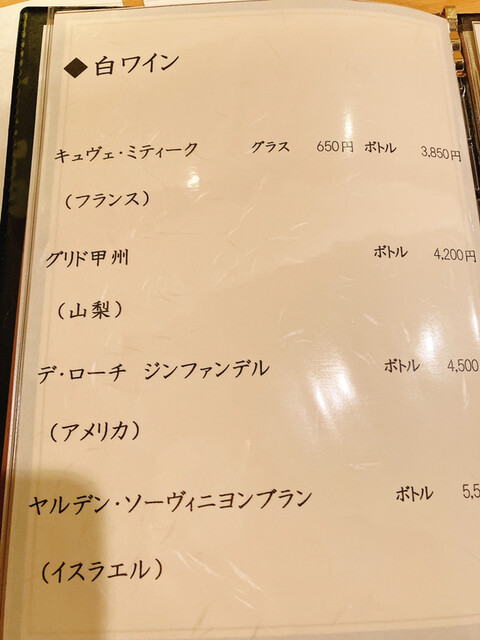 ◆白ワイン
キュヴェ・ミティーク グラス 650円 ボトル 3,850円
（フランス）
グリド甲州 ボトル 4,200円
（山梨）
デ・ローチ ジンファンデル ボトル 4,500
（アメリカ）
ヤルデン・ソーヴィニヨンブラン ボトル 5,5
（イスラエル）